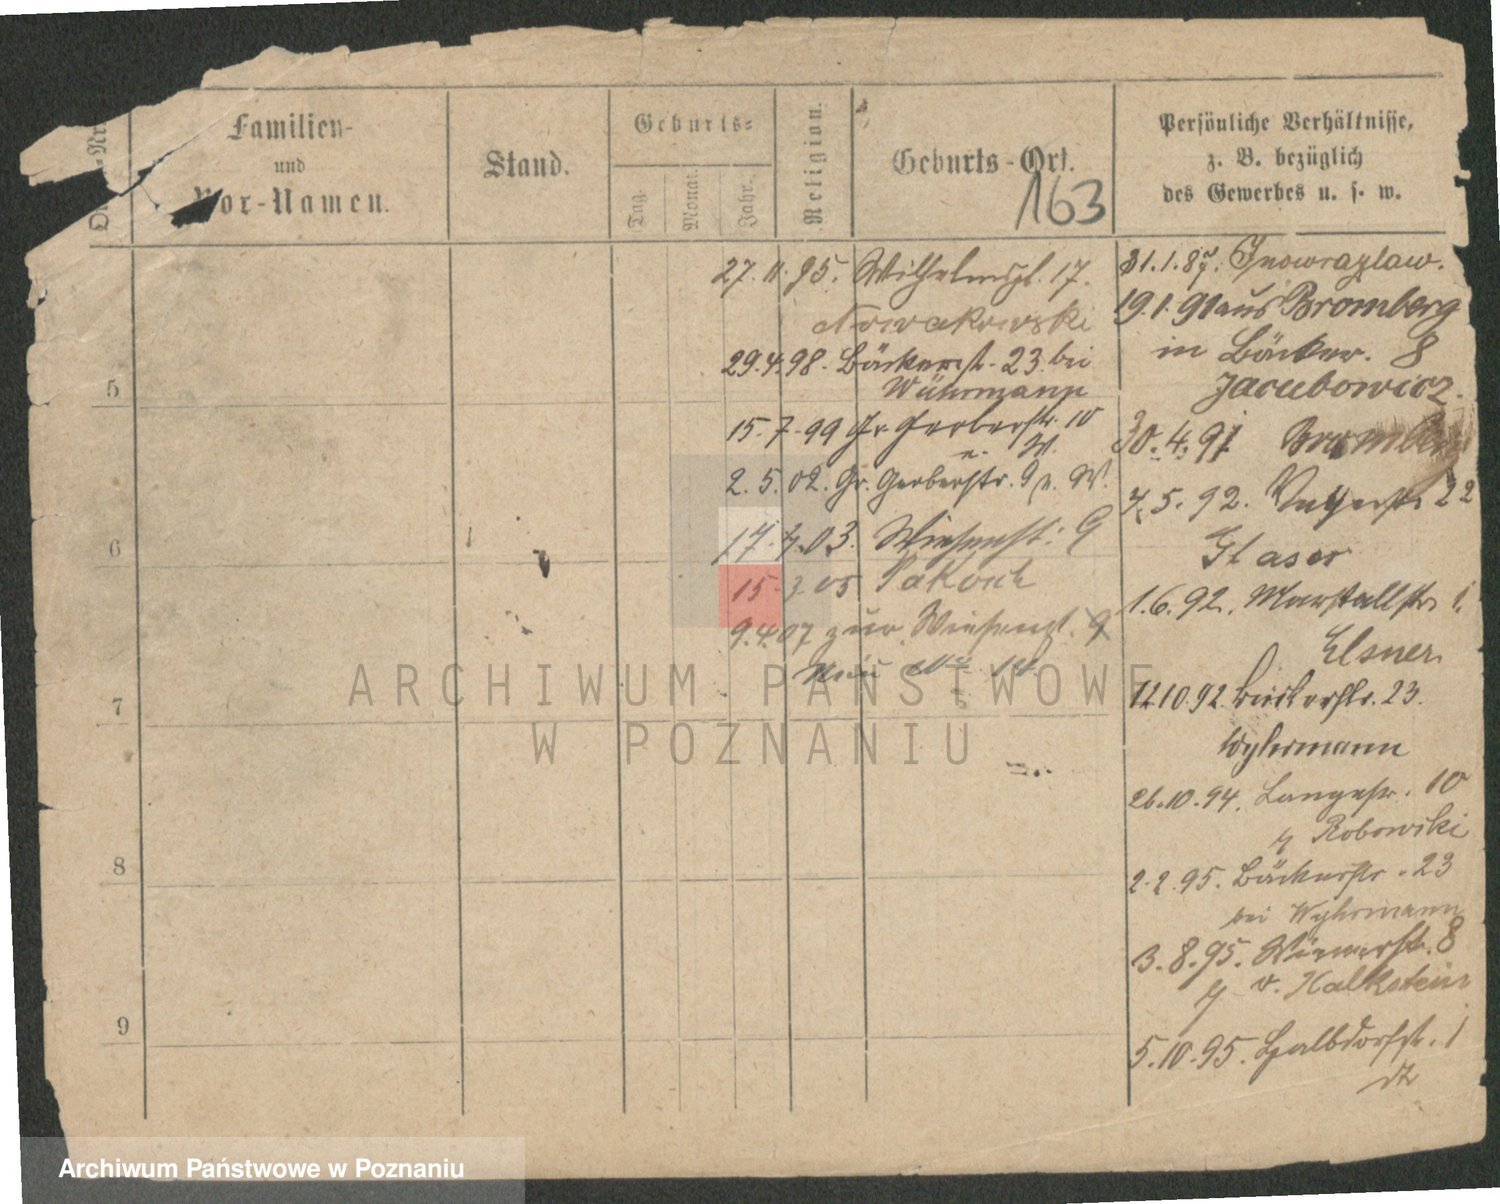 Familien-
und
Vor-Namen.
Stand.
Geburts-
Tag.
Monat.
Jahr.
Religion.
Geburts-Ort.
163
Persönliche Verhältnisse,
z. B. bezüglich
des Gewerbes u. s. w.
27. 11. 95. Wilhelmspl. 17.
Nowakowski
29.4.98. Bäckerst. 23. bei
Wührmann
15.7.99 Gr. Gerberstr. 10
2.5.02. Gr. Gerberstr. 9
17.7.03. Wiesenst. 9
15. 05 Pakosch
9.4.07 zur Wiesenst. 9
31.1.87. Inowrazlaw.
19.1.91 aus Bromberg
in Bäcker. 8
Jacubowicz.
30.4.91 Bromberg
4.5.92. 22
Glaser
1.6.92. Marstallstr. 1.
Elsner
12.10.92. Bäckerstr. 23.
Wyhrmann
26.10.94. Langestr. 10
Robowski
2.2.95. Bäckerstr. 23
bei Wyhrmann
3.8.95. Wienerstr. 8
v. Kalkstein
5.10.95. Halbdorfst. 1
5
6
7
8
9
ARCHIWUM PAŃSTWOWE
W POZNANIU
Archiwum Państwowe w Poznaniu